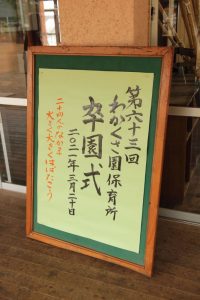 第六十三回
わかくさ園保育所
卒園式
二〇二一年三月二十日
二十四人のなかよ
大きく大きくはばたこう